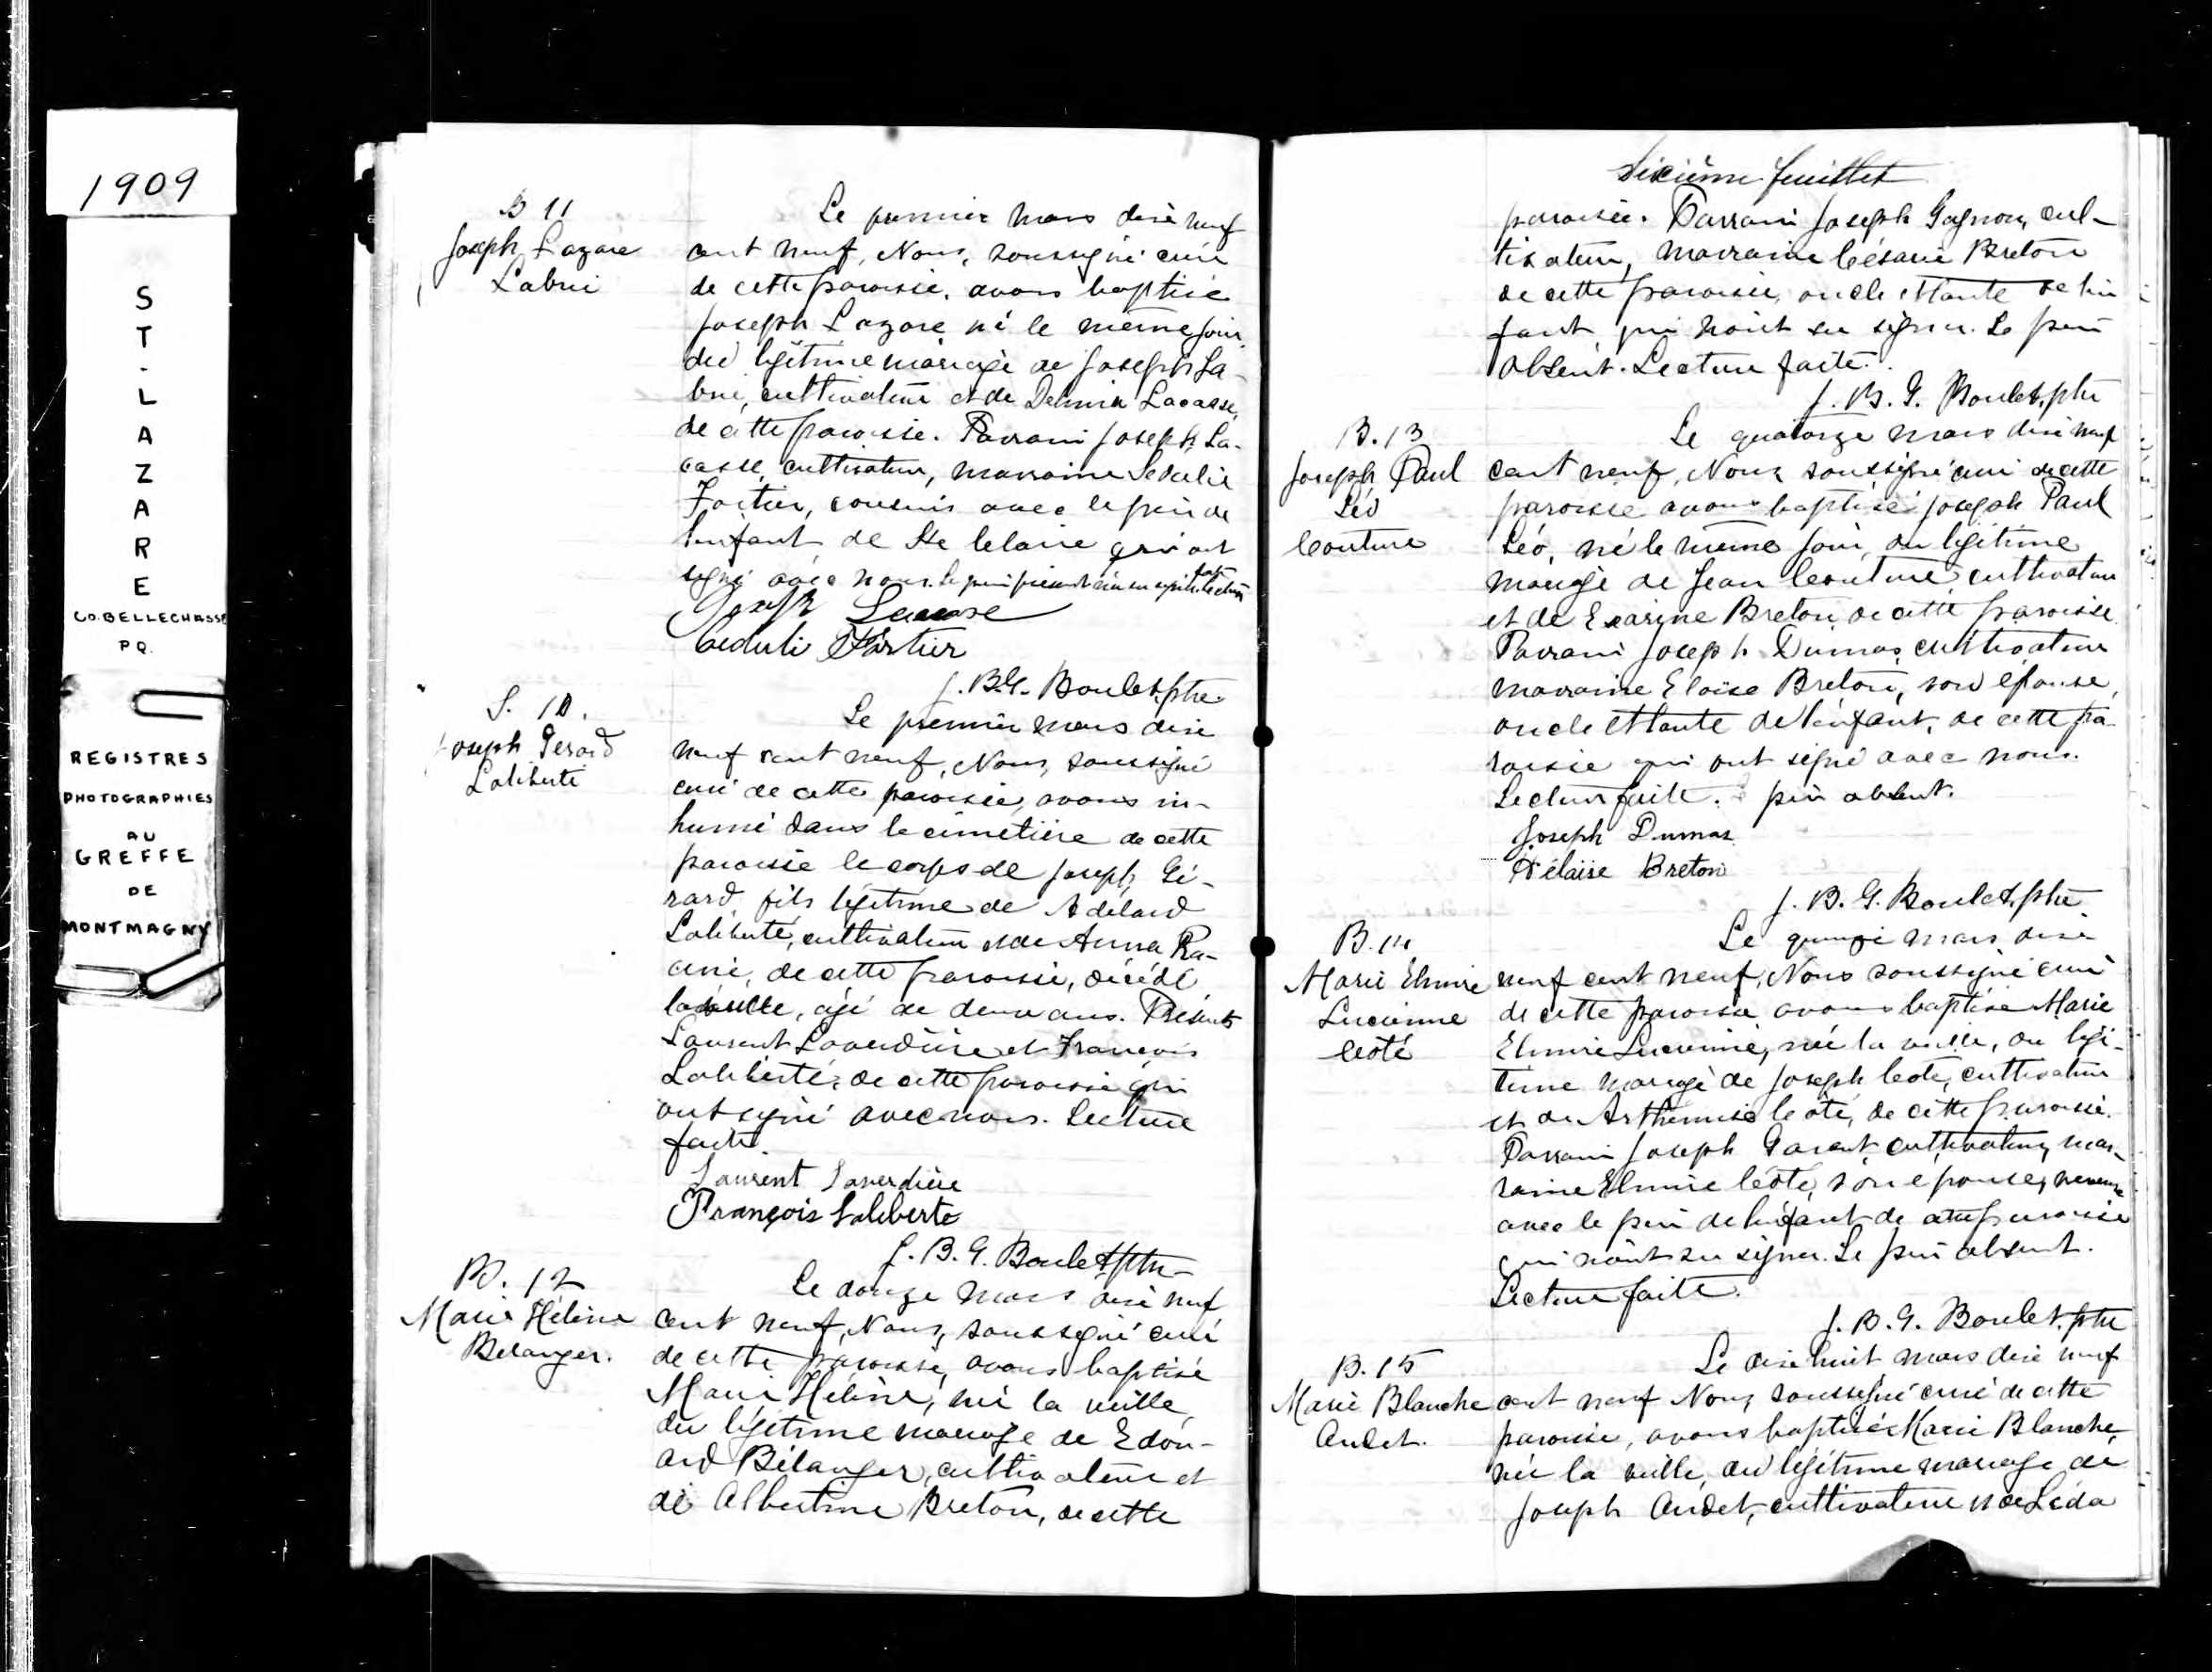 1909
ST. LAZARE
CO. BELLECHASSE
P Q.
REGISTRES
PHOTOGRAPHIES
AU
GREFFE
DE
MONTMAGNY
B 11
Joseph Lazare
Labrie
Le premier mars dix neuf
cent neuf, Nous, soussigné curé
de cette paroisse, avons baptisé
Joseph Lazare né le même jour,
du légitime mariage de Joseph La-
brie, cultivateur et de Lacasse,
de cette paroisse. Parrain Joseph La-
casse, cultivateur, marraine Sédulie
Fortier, cousins avec le père de
l'enfant de Ste Claire qui ont
signé avec nous. Le père
Joseph Lacasse
Ceduli Fortier
J. B. G. Boulet, ptre
S. 10.
Joseph Gérard
Laliberté
Le premier mars dix
neuf cent neuf, Nous, soussigné
curé de cette paroisse, avons in-
humé dans le cimetière de cette
paroisse le corps de Joseph Gé-
rard, fils légitime de Adélard
Laliberté, cultivateur et de Anna Ra-
cine, de cette paroisse, décédé
la veille, âgé de deux ans. Présents
Laurent Laverdière et François
Laliberté, de cette paroisse qui
ont signé avec nous. Lecture
faite.
Laurent Laverdière
François Laliberte
J. B. G. Boulet ptre
B. 12
Marie Hélène
Belanger.
Le douze mars dix neuf
cent neuf, Nous, soussigné curé
de cette paroisse, avons baptisé
Marie Hélène, née la veille,
du légitime mariage de Edou-
ard Bélanger, cultivateur et
de Albertine Breton, de cette
Sixième feuillet
paroisse. Parrain Joseph Gagnon, cul-
tivateur, marraine Césarie Breton
de cette paroisse, oncle et tante de l'en
fant, qui n'ont su signer. Le père
absent. Lecture faite.
J. B. G. Boulet, ptre
B. 13
Joseph Paul
Léo
Couture
Le quatorze mars dix neuf
cent neuf, Nous soussigné curé de cette
paroisse avons baptisé Joseph Paul
Léo, né le même jour, du légitime
mariage de Jean Couture cultivateur
et de Exarine Breton, de cette paroisse
Parrain Joseph Dumas, cultivateur
marraine Eloïse Breton, son épouse,
oncle et tante de l'enfant, de cette pa-
roisse qui ont signé avec nous.
Lecture faite. père absent.
Joseph Dumas
Hélaise Breton
J. B. G. Boulet, ptre
B. 14
Marie Elmire
Lucienne
Coté
Le quinze mars dix
neuf cent neuf, Nous soussigné curé
de cette paroisse avons baptisé Marie
Elmire Lucienne, née la veille, du légi-
time mariage de Joseph Coté, cultivateur
et de Arthémise Coté, de cette paroisse.
Parrain Joseph Garant, cultivateur, mar-
raine Elmire Coté, son épouse,
avec le père de l'enfant de cette paroisse
qui n'ont su signer. Le père absent.
Lecture faite.
J. B. G. Boulet, ptre
B. 15
Marie Blanche
Audet.
Le dix huit mars dix neuf
cent neuf Nous, soussigné curé de cette
paroisse, avons baptisé Marie Blanche,
née la veille, du légitime mariage de
Joseph Audet, cultivateur et de Léda